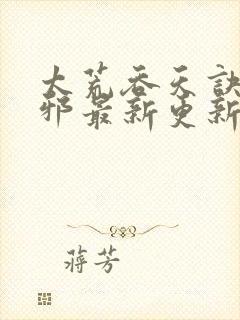 大荒吞天诀
邪最新更新
蒋芳